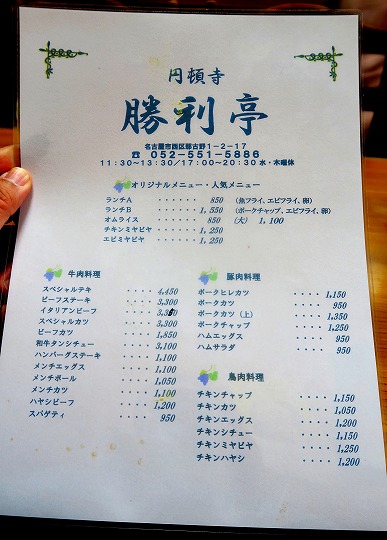 円頓寺
勝利亭
名古屋市西区那古野1-2-17
☎ 052-551-5886
11:30~13:30/17:00~20:30 水・木曜休
オリジナルメニュー・人気メニュー
ランチA ‥‥ 850 (魚フライ、エビフライ、卵)
ランチB ‥‥ 1,550 (ポークチャップ、エビフライ、卵)
オムライス ‥‥ 850 (大) 1,100
チキンミヤビヤ ‥‥ 1,250
エビミヤビヤ ‥‥ 1,250
牛肉料理
スペシャルテキ ‥‥ 4,450
ビーフステキ ‥‥ 3,300
イタリアンビーフ ‥‥
スペシャルカツ ‥‥ 3,300
ビーフカツ ‥‥ 1,850
和牛タンシチュー ‥‥ 3,100
ハンバーグステーキ ‥‥ 1,100
メンチエッグス ‥‥ 1,100
メンチボール ‥‥ 1,050
メンチカツ ‥‥ 1,100
ハヤシビーフ ‥‥ 1,200
スパゲティ ‥‥ 950
豚肉料理
ポークヒレカツ ‥‥ 1,150
ポークカツ ‥‥ 950
ポークカツ (上) ‥‥ 1,350
ポークチャップ ‥‥ 1,250
ハムエッグス ‥‥ 950
ハムサラダ ‥‥ 950
鳥肉料理
チキンチャップ ‥‥ 1,150
チキンカツ ‥‥ 1,050
チキンエッグス ‥‥ 1,200
チキンシチュー ‥‥ 1,150
チキンミヤビヤ ‥‥ 1,250
チキンハヤシ ‥‥ 1,200